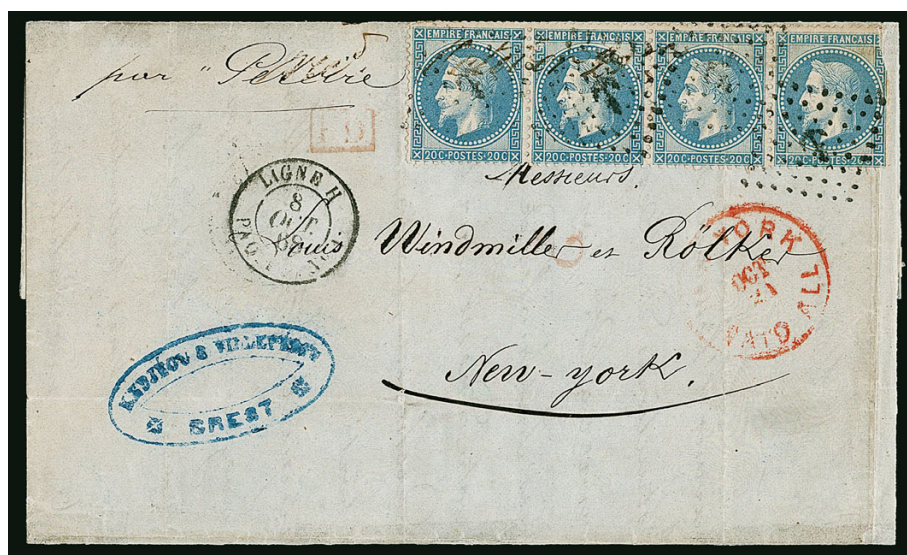 par "Pereire
EMPIRE FRANÇAIS
20C·POSTES·20C
EMPIRE FRANÇAIS
20C·POSTES·20C
EMPIRE FRANÇAIS
20C·POSTES·20C
EMPIRE FRANÇAIS
20C·POSTES·20C
P.D.
LIGNE H
8
OCT.
PAQ
Messieurs.
Louis Windmiller et Rölker
YORK
OCT
21
PAID ALL
New-york.
BREST